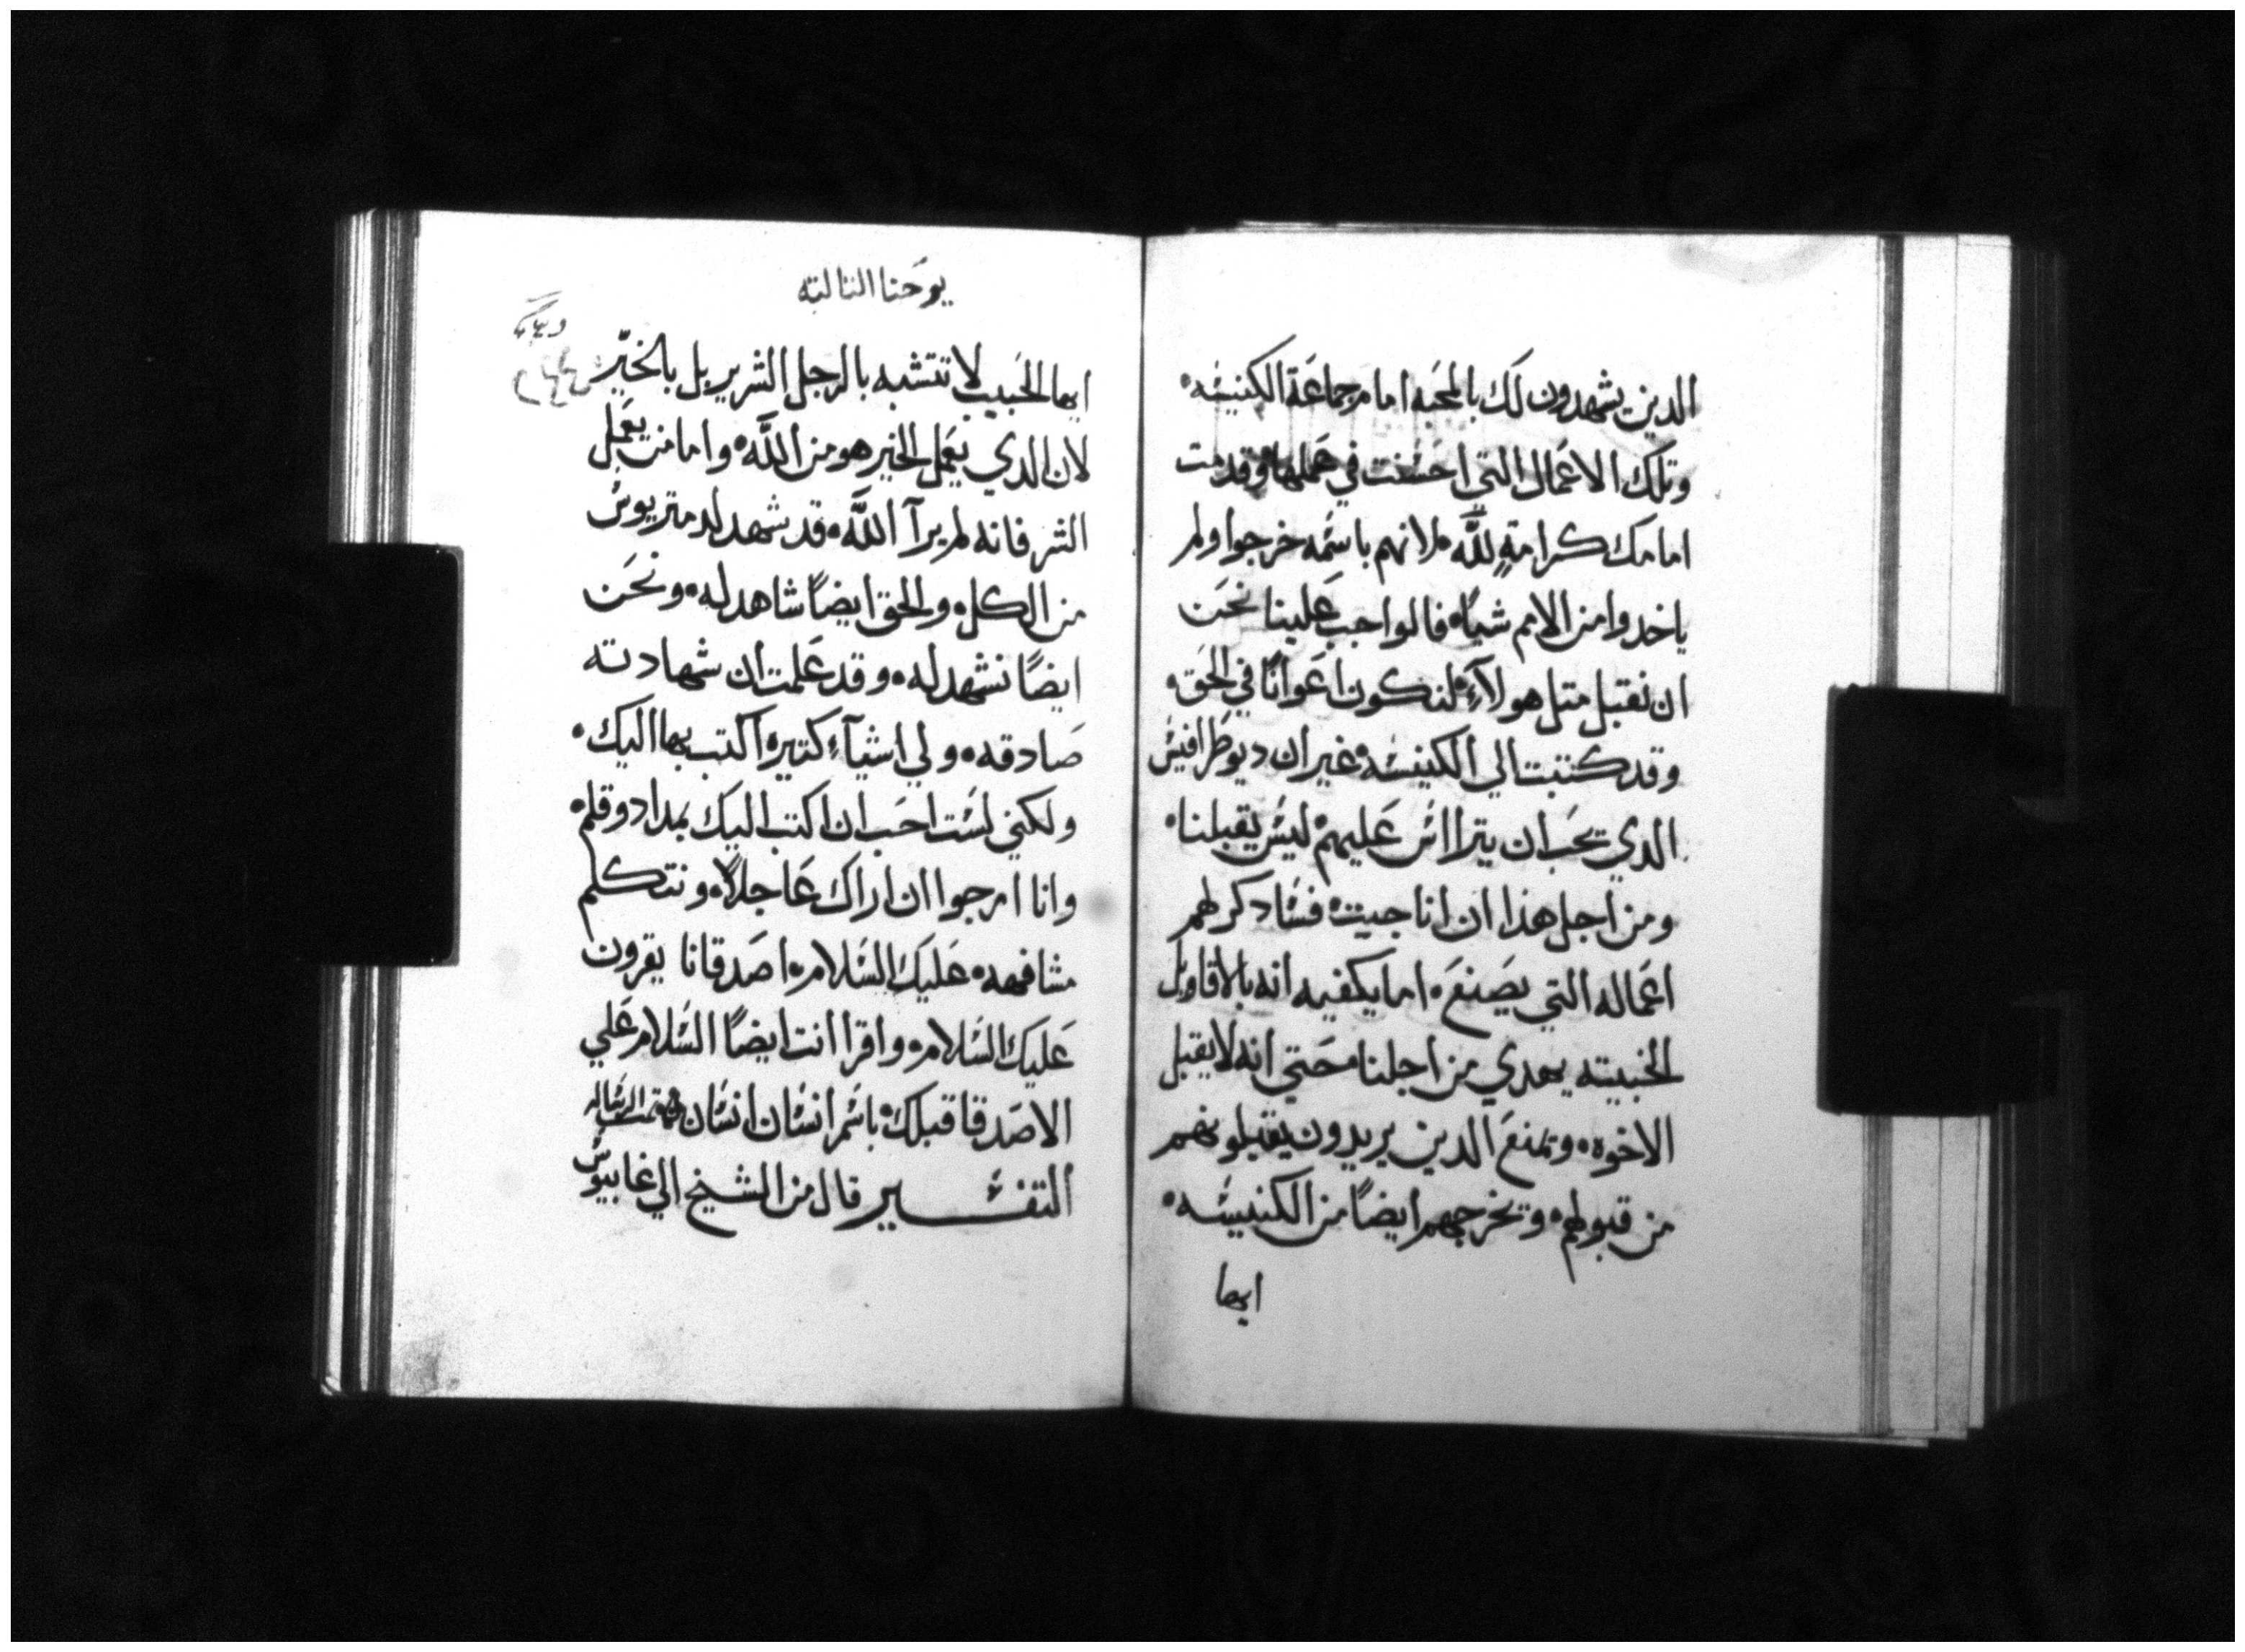 الدين يشهدون لك بالمحبه امام جماعة الكنيسه٠
وتلك الاعمال التي احسنت في عملها٠ وقدمت
امامك كرامةٍ للَّه٠ لانهم باسمه خرجوا ولم
ياخدوا من الامم شياً٠ فالواجب علينا نحن
ان نقبل متل هولآءِ٠ لنكون اعوانًا في الحق٠
وقد كتبت الي الكنيسه٠ غير ان ديوطرافيس
الدي يحب ان يتراا س عليهم٠ ليس يقبلنا٠
ومن اجل هذا ان انا جيت٠ فسادكر لهم
اعماله التي يصنع٠ اما يكفيه انه بالاقاويل
الخبيته يهدي من اجلنا٠ حتي انه لا يقبل
الاخوه٠ ويمنع الدين يريدون يقبلونهم
من قبولهم٠ ويخرجهم ايضًا من الكنيسه٠
ايها
يوحنا التالته
ايها الحبيب لا تتشبه بالرجل الشرير بل بالخيّر
لان الدي يعمل الخير هو من اللَّه٠ واما من يعمل
الشر فانه لم يرآ اللَّه٠ قد شهد لدمتريوس
من الكل٠ والحق ايضًا شاهد له٠ ونحن
ايضًا نشهد له٠ وقد علمت ان شهادته
صادقه٠ ولي اشيآءِ كتيره اكتب بها اليك٠
ولكني لست احب ان اكتب اليك بمداد وقلم٠
وانا ارجوا ان اراك عاجلاً٠ ونتكلم
مشافهه٠ عليك السلام٠ اصدقانا يقرون
عليك السلام٠ واقرا انت ايضًا السلام علي
الاصدقا قبلك٠ باسم انسان انسان٠ تمت الرساله
التفسير قال من الشيخ الي غابيوس